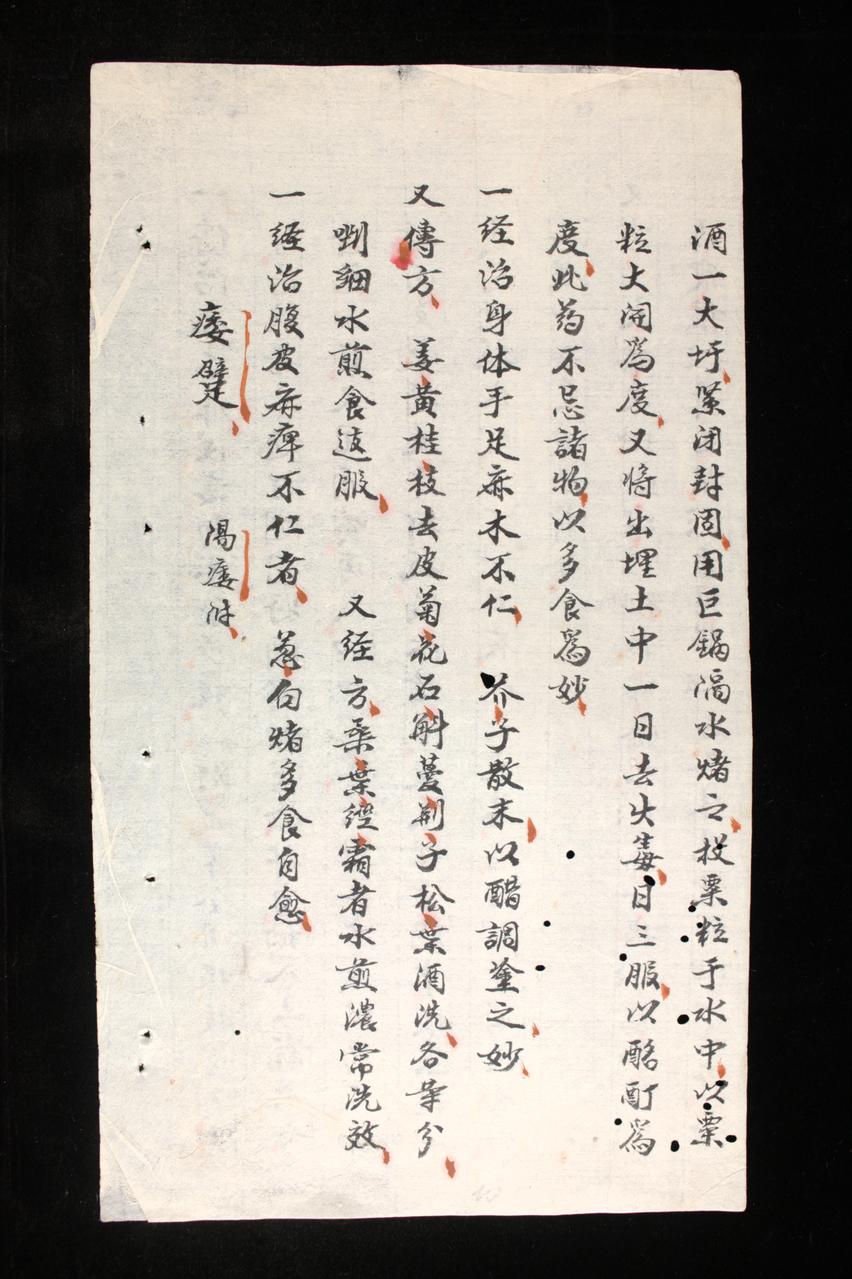 酒一大圩緊闭封固用巨鍋隔水㷇之投粟粒于水中以粟
粒大開爲度又將出埋土中一日去火毒日三服以酩酊爲
度此药不忌諸物以多食爲妙
一经治身体手足麻木不仁 芥子散末以醋調塗之妙
又傳方 姜黄桂枝去皮菊花石斛蔓荆子松葉酒洗各等分
㘑細水煎食远服 又经方桑葉經霜者水煎濃常洗效
一經治腹皮麻痺不仁者 葱白㷇多食自愈
痿躄 陽痿附